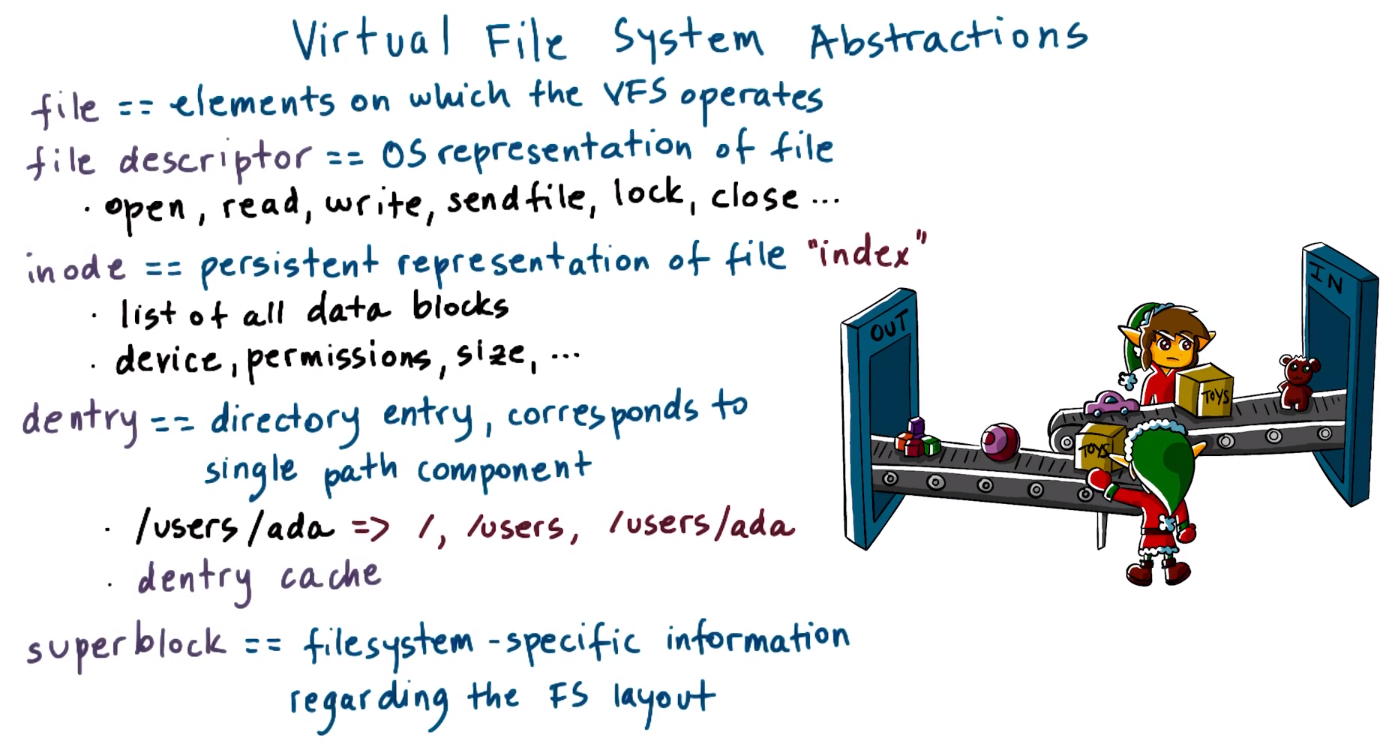 Virtual File System Abstractions
file == elements on which the VFS operates
file descriptor == OS representation of file
· open, read, write, sendfile, lock, close ...
inode == persistent representation of file "index"
· list of all data blocks
· device, permissions, size, ...
dentry == directory entry, corresponds to
single path component
· /users/ada => /, /users, /users/ada
· dentry cache
superblock == filesystem-specific information
regarding the FS layout
OUT
IN
TOYS
TOYS